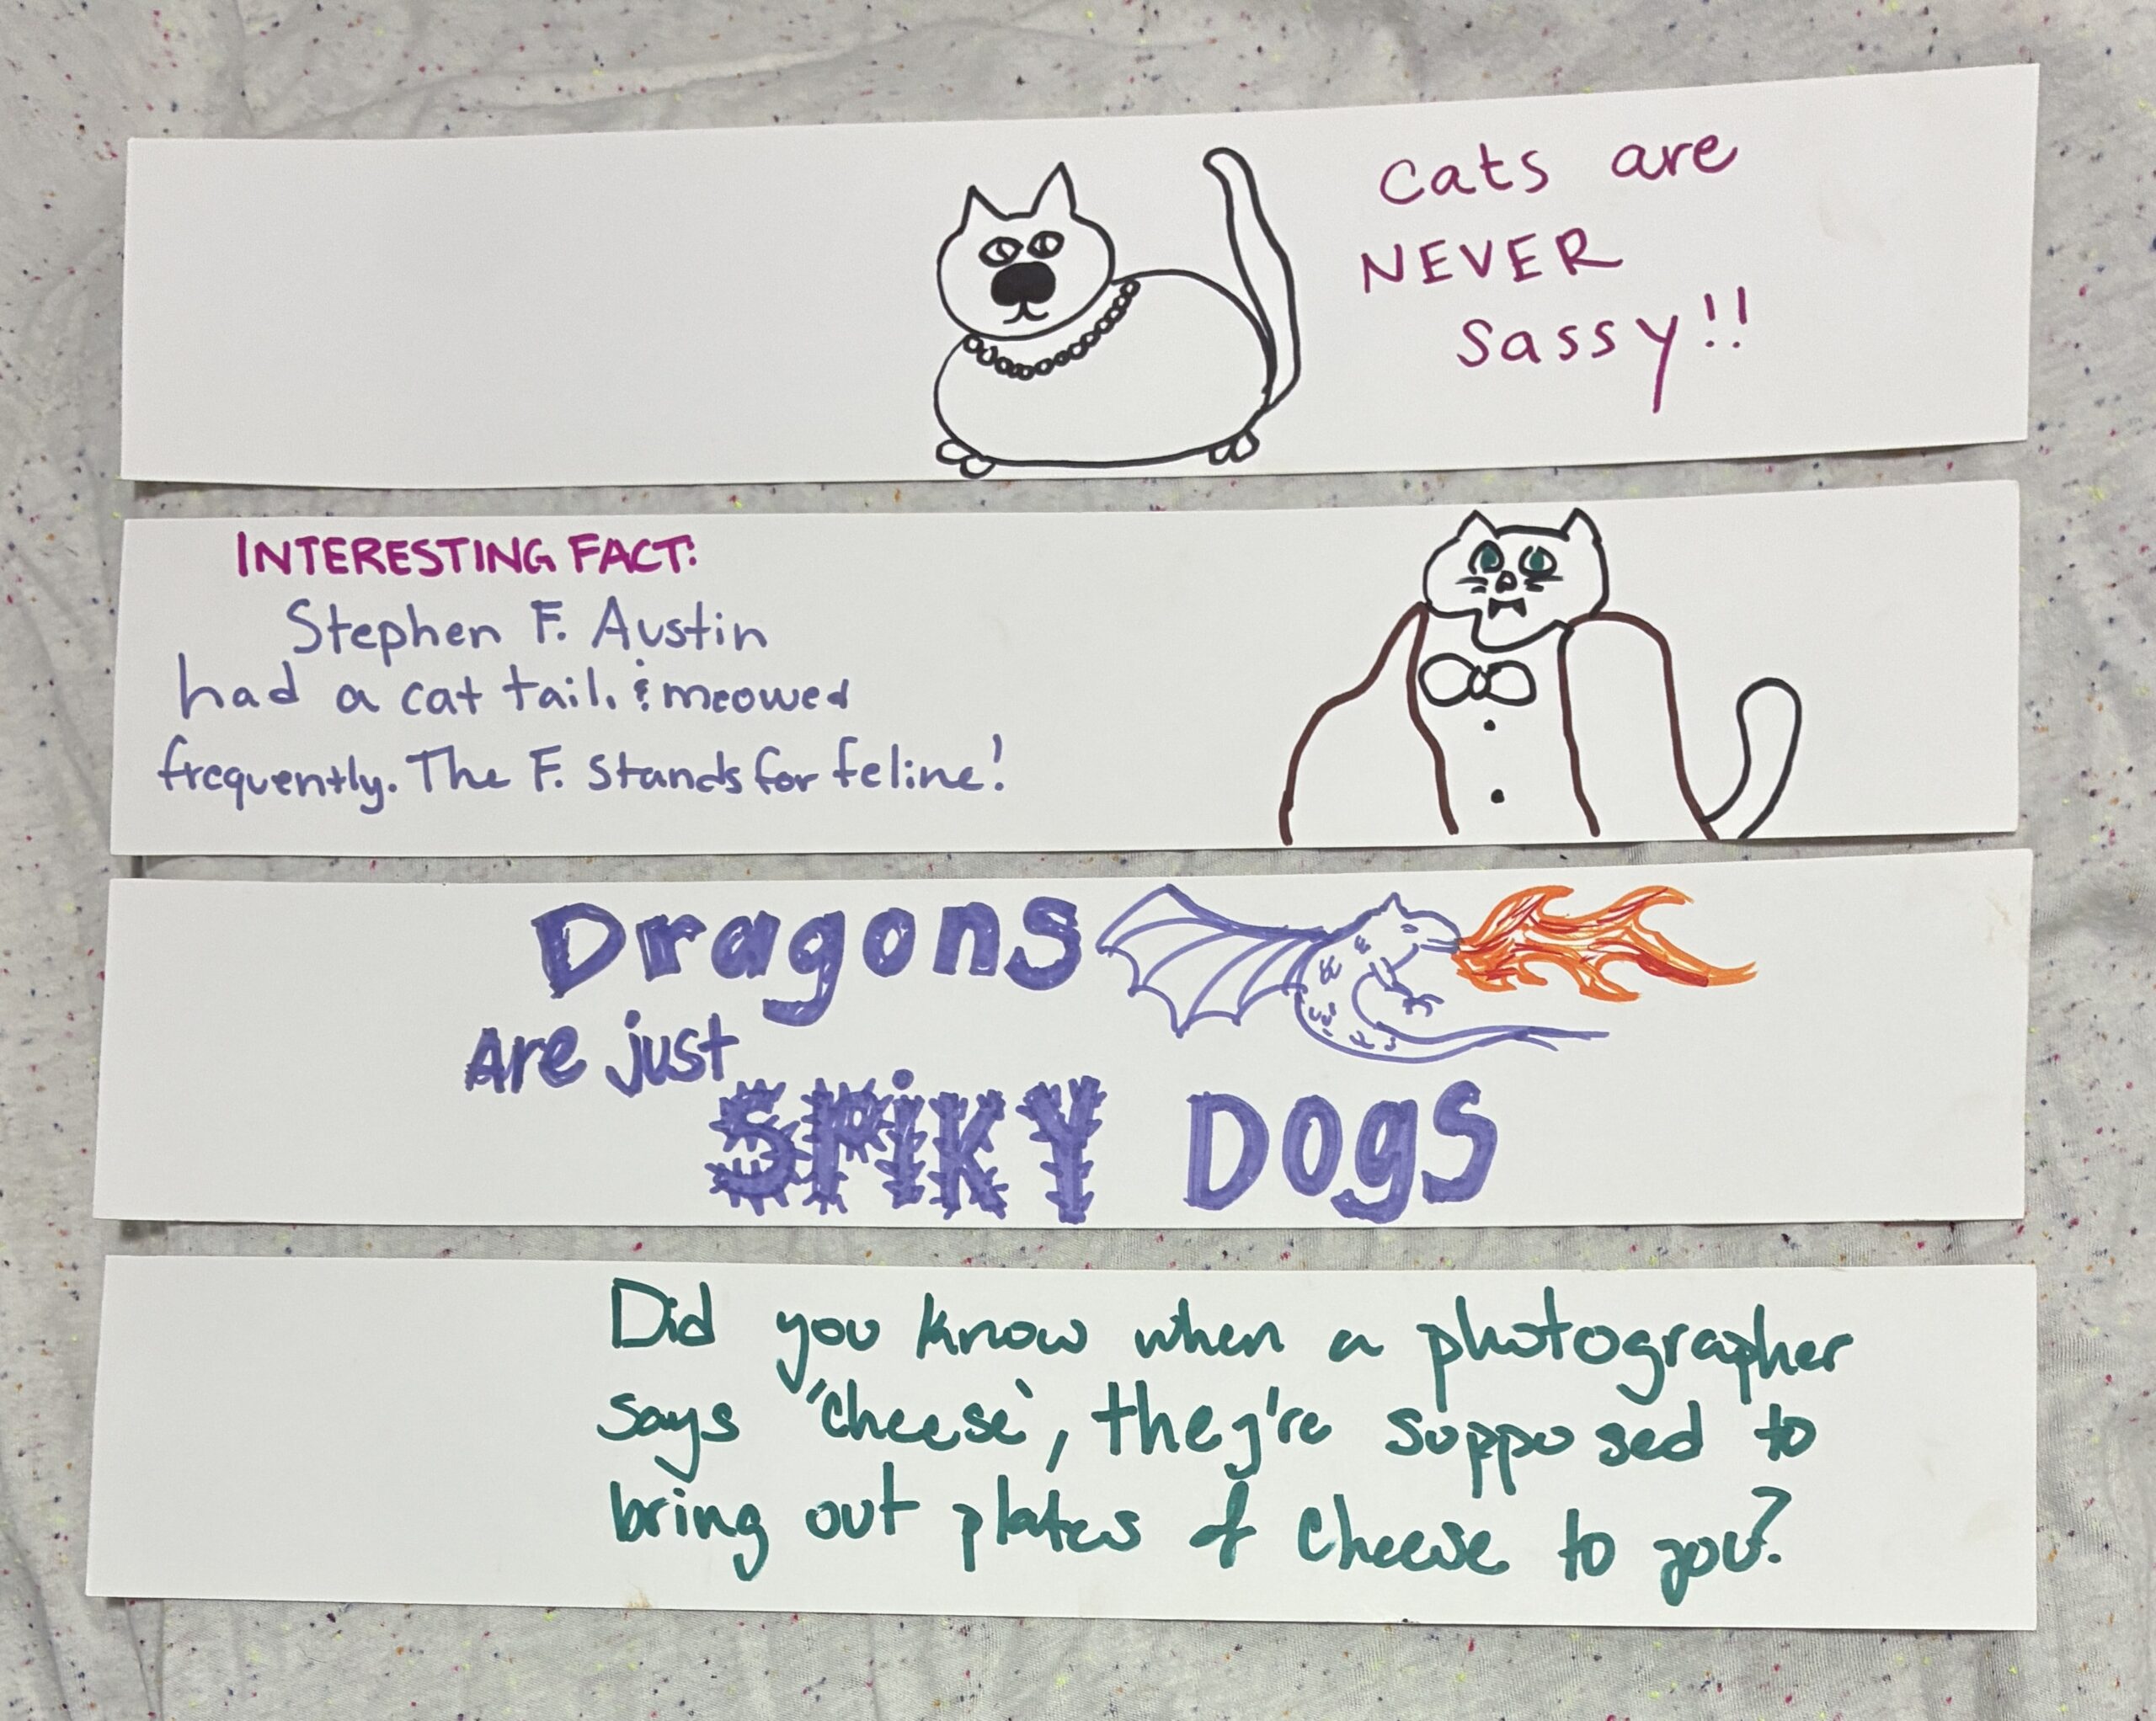 Cats are
NEVER
Sassy!!
INTERESTING FACT:
Stephen F. Austin
had a cat tail. & meowed
frequently. The F. Stands for feline!
Dragons
Are just
SPiKY DOgS
Did you know when a photographer
says "cheese", they're supposed to
bring out plates of cheese to you?